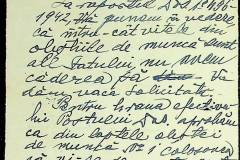 La raportul Dvs. 15496-
1942, Vă punem în vedere
că întru-cât vitele din
obștiile de muncă sunt
ale Statului, nu avem
căderea să Vă
dăm vace solicitate.
Pentru hrana efectivu-
lui Postului Dvs. aprobăm
ca din laptele obștei
de muncă No 1 Colosova